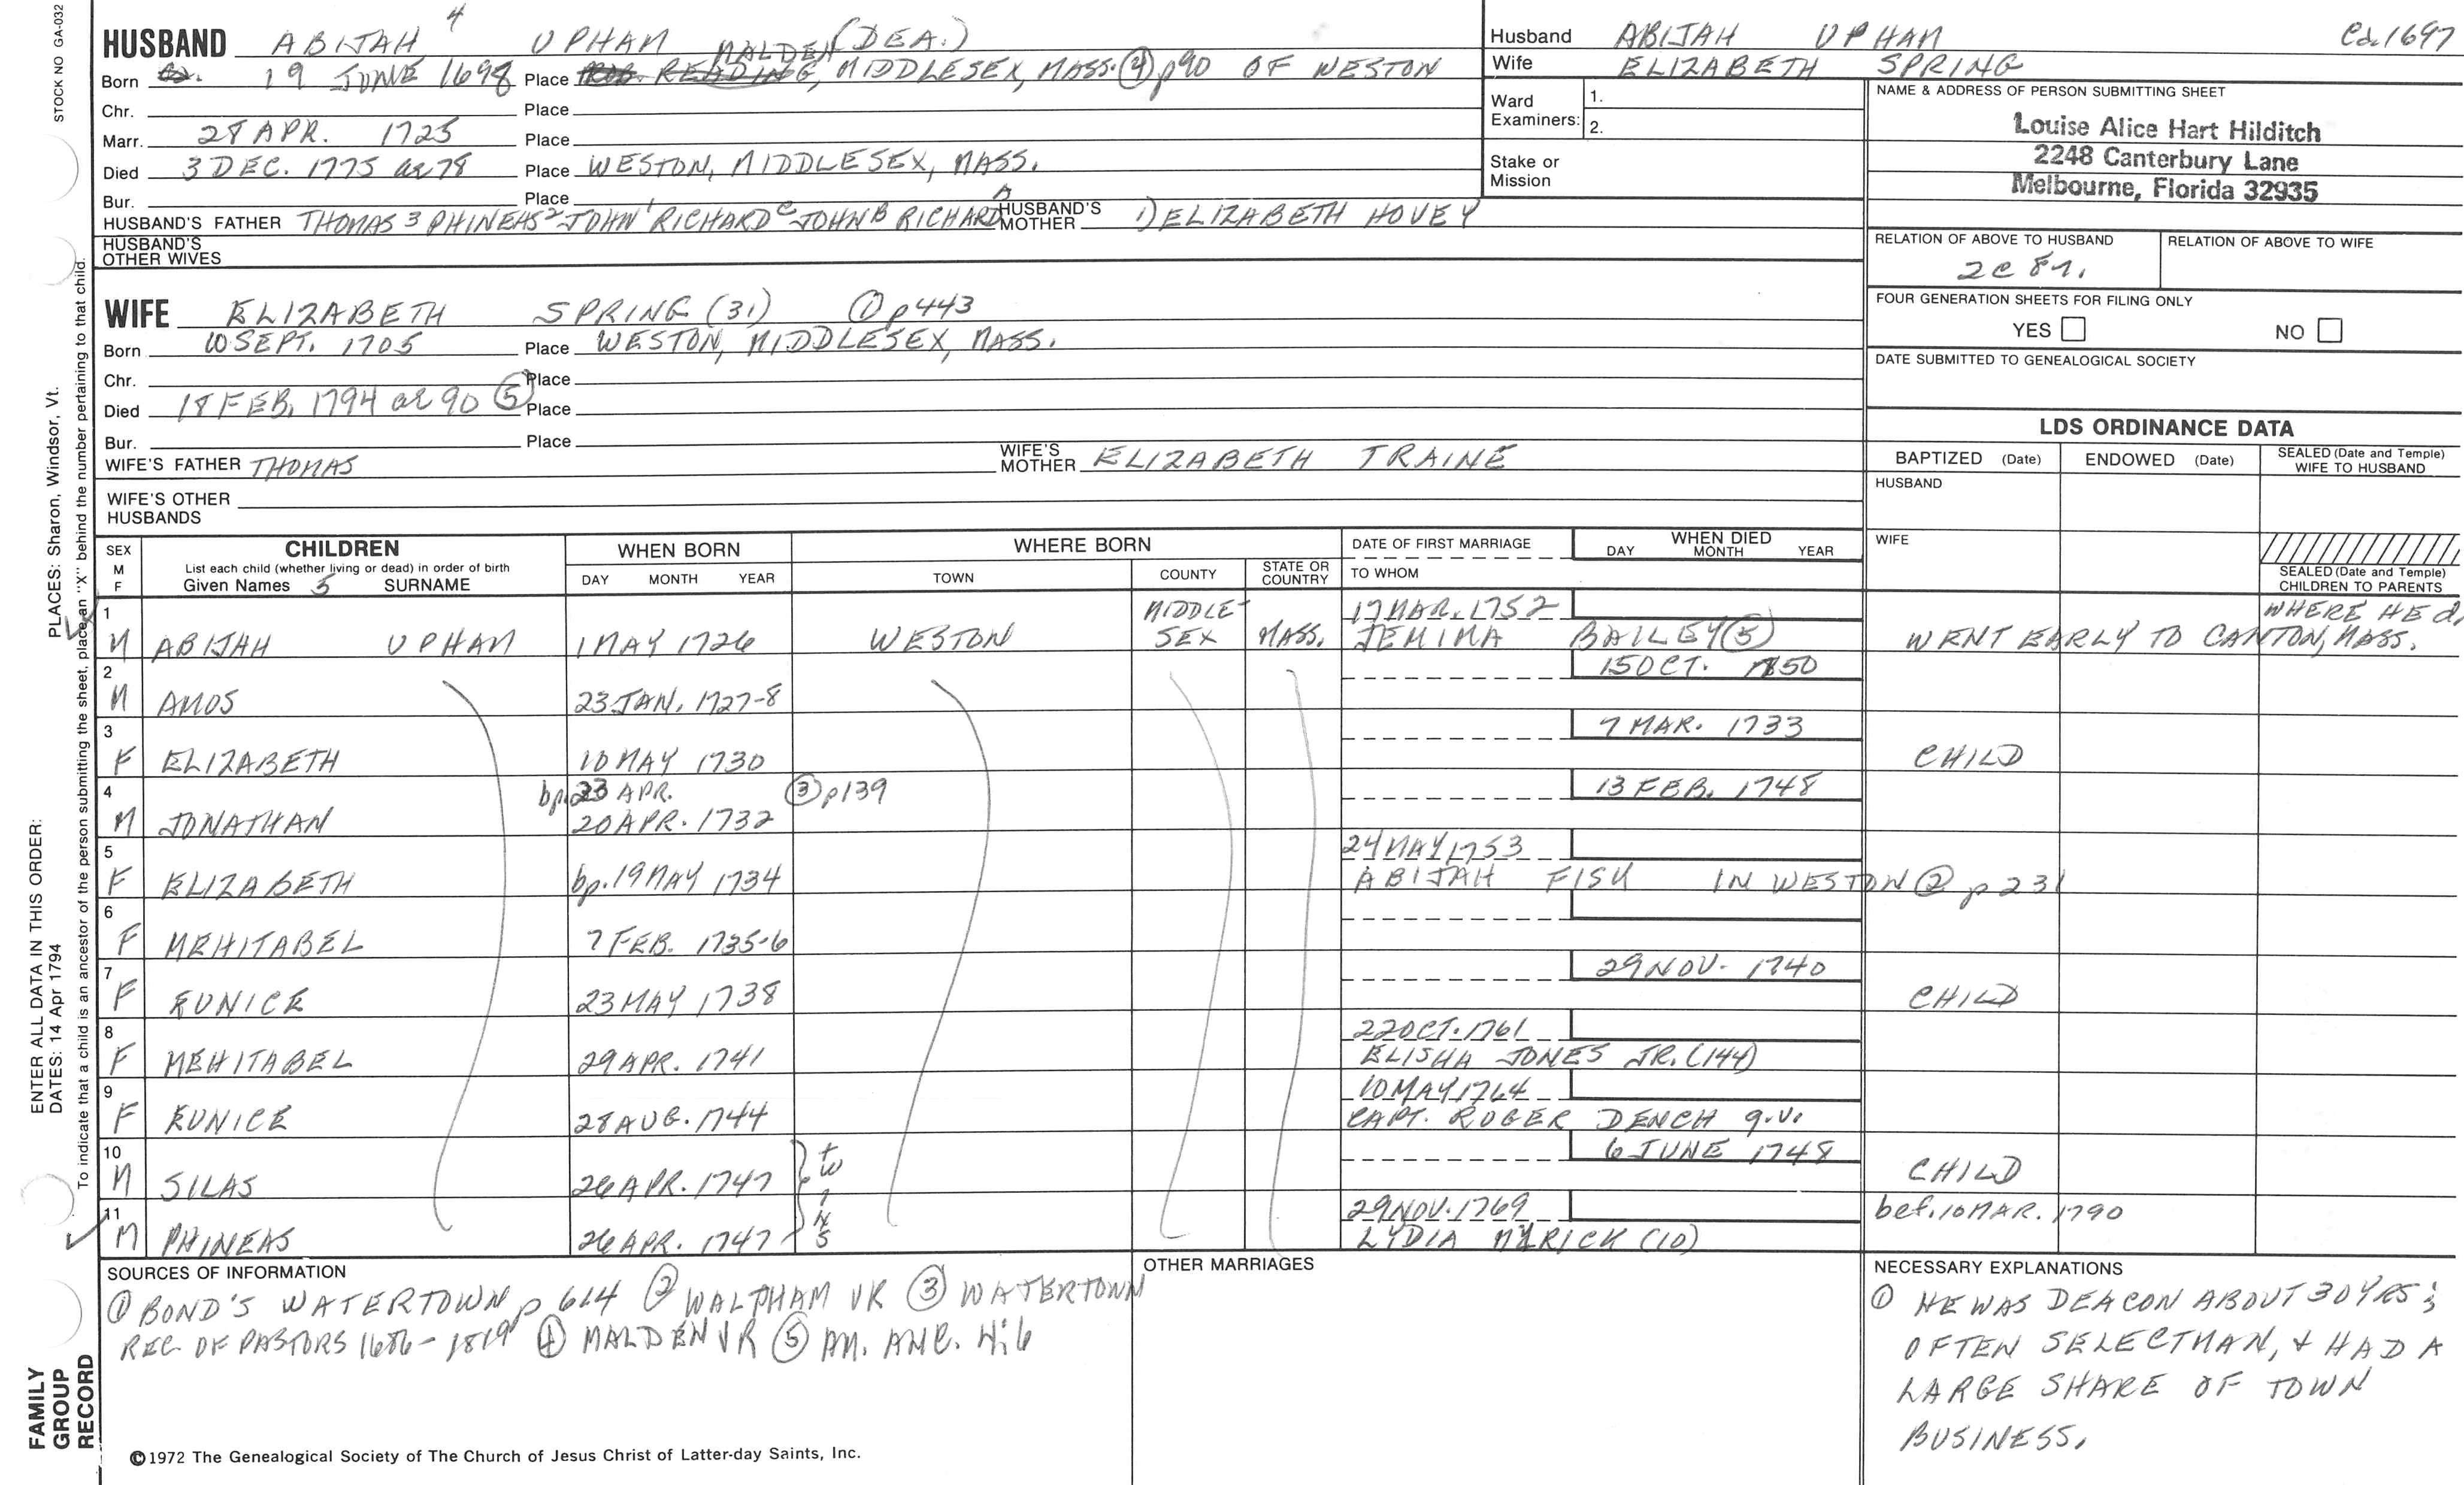 STOCK NO GA-032
HUSBAND ABIJAH 4 UPHAM (DEA.)
MALDEN
Born 19 JUNE 1698 Place READING, MIDDLESEX, MASS. ④ p90 OF WESTON
Chr. Place
Marr. 28 APR. 1725 Place
Died 3 DEC. 1775 ae 78 Place WESTON, MIDDLESEX, MASS.
Bur. Place
HUSBAND'S FATHER THOMAS 3 PHINEHAS 2 JOHN 1 RICHARD C JOHN B RICHARD A HUSBAND'S MOTHER 1) ELIZABETH HOVEY
HUSBAND'S OTHER WIVES
WIFE ELIZABETH SPRING (31) ① p443
Born 10 SEPT. 1705 Place WESTON, MIDDLESEX, MASS.
Chr. Place
Died 18 FEB. 1794 ae 90 ⑤ Place
Bur. Place
WIFE'S FATHER THOMAS WIFE'S MOTHER ELIZABETH TRAINE
WIFE'S OTHER HUSBANDS
Husband ABIJAH UPHAM Ca. 1697
Wife ELIZABETH SPRING
Ward Examiners: 1.
2.
Stake or Mission
NAME & ADDRESS OF PERSON SUBMITTING SHEET
Louise Alice Hart Hilditch
2248 Canterbury Lane
Melbourne, Florida 32935
RELATION OF ABOVE TO HUSBAND RELATION OF ABOVE TO WIFE
2C 8r.
FOUR GENERATION SHEETS FOR FILING ONLY
YES NO
DATE SUBMITTED TO GENEALOGICAL SOCIETY
LDS ORDINANCE DATA
BAPTIZED (Date) ENDOWED (Date) SEALED (Date and Temple) WIFE TO HUSBAND
HUSBAND
WIFE
SEALED (Date and Temple) CHILDREN TO PARENTS
SEX M F CHILDREN WHEN BORN WHERE BORN DATE OF FIRST MARRIAGE WHEN DIED
List each child (whether living or dead) in order of birth
Given Names 5 SURNAME DAY MONTH YEAR TOWN COUNTY STATE OR COUNTRY TO WHOM DAY MONTH YEAR
1 MIDDLE- 17 MAR. 1752 WHERE HE d.
M ABIJAH UPHAM 1 MAY 1726 WESTON SEX MASS. JEMIMA BAILEY ⑤ WENT EARLY TO CANTON, MASS.
2 15 OCT. 1850
M AMOS 23 JAN. 1727-8
3 7 MAR. 1733
F ELIZABETH 10 MAY 1730 CHILD
4 bp. 23 APR. ③ p139 13 FEB. 1748
M JONATHAN 20 APR. 1732
5 24 MAY 1753
F ELIZABETH bp. 19 MAY 1734 ABIJAH FISK IN WESTON ② p 231
6
F MEHITABEL 7 FEB. 1735-6
7 29 NOV. 1740
F EUNICE 23 MAY 1738 CHILD
8 22 OCT. 1761
F MEHITABEL 29 APR. 1741 ELISHA JONES JR. (144)
9 10 MAY 1764
F EUNICE 28 AUG. 1744 CAPT. ROGER DENCH q.v.
10 6 JUNE 1748
M SILAS 26 APR. 1747 twins CHILD
11 29 NOV. 1769 bef. 10 MAR. 1790
M PHINEAS 26 APR. 1747 LYDIA MYRICK (10)
SOURCES OF INFORMATION
① BOND'S WATERTOWN p 614 ② WALTHAM VR ③ WATERTOWN
REC. OF PASTORS 1686-1819 ④ MALDEN VR ⑤ AM. ANC. 4:6
OTHER MARRIAGES
NECESSARY EXPLANATIONS
① HE WAS DEACON ABOUT 30 YRS;
OFTEN SELECTMAN, + HAD A
LARGE SHARE OF TOWN
BUSINESS.
©1972 The Genealogical Society of The Church of Jesus Christ of Latter-day Saints, Inc.
FAMILY GROUP RECORD
ENTER ALL DATA IN THIS ORDER:
DATES: 14 Apr 1794
PLACES: Sharon, Windsor, Vt.
To indicate that a child is an ancestor of the person submitting the sheet, place an "X" behind the number pertaining to that child.